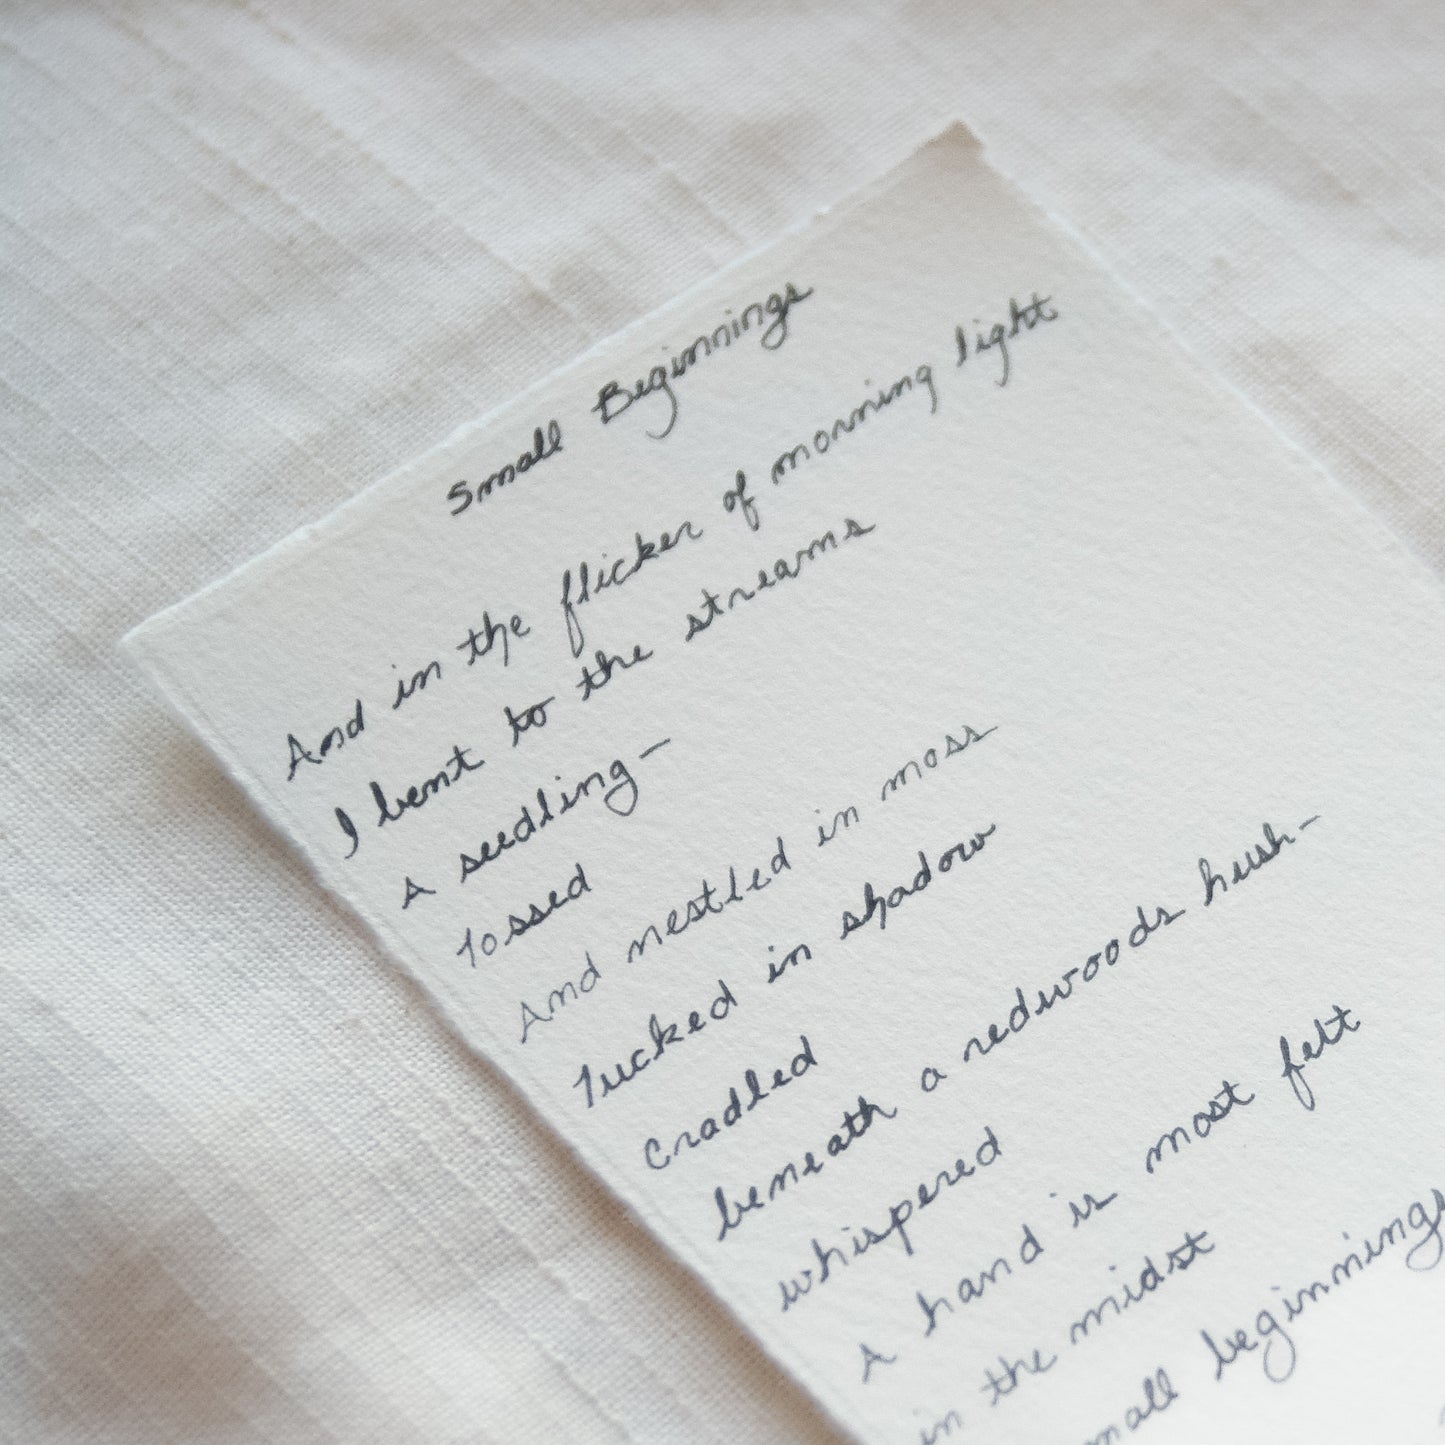 Small Beginnings
And in the flicker of morning light
I bent to the streams
A seedling—
Tossed
And nestled in moss
Tucked in shadow
Cradled
beneath a redwoods hush—
whispered
A hand is most felt
in the midst
small beginnings